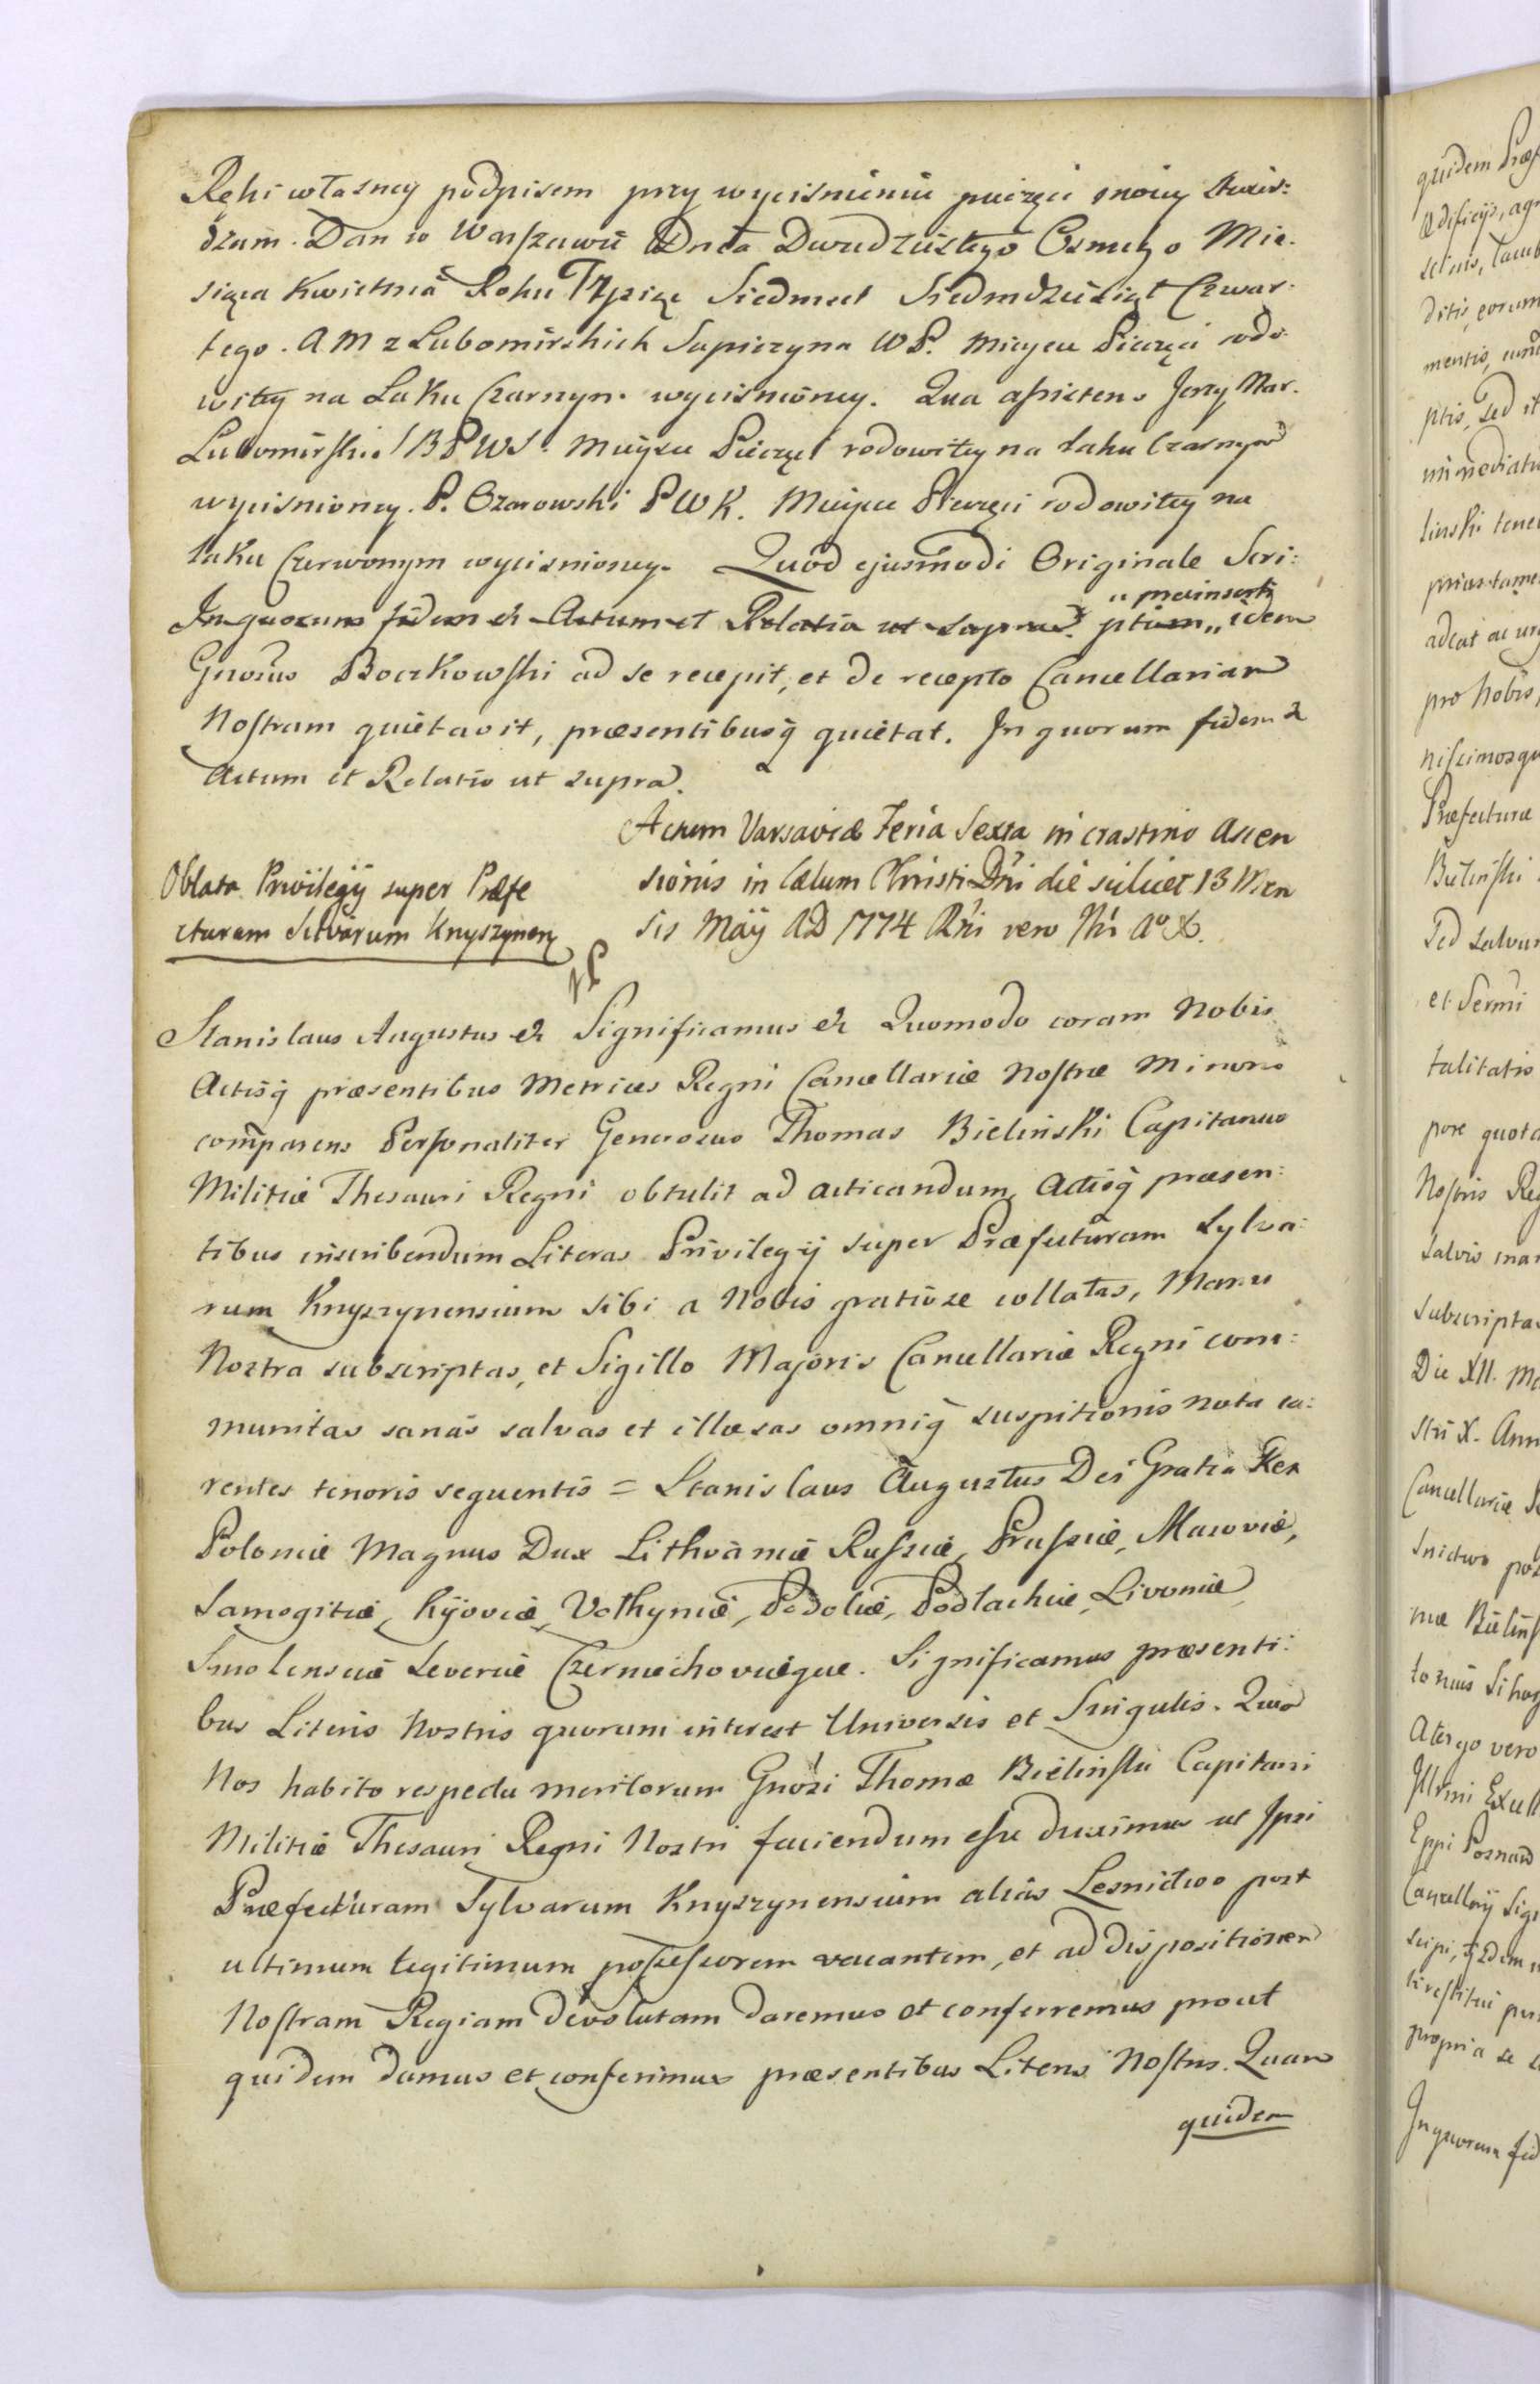 Ręki własney podpisem przy wyciśnieniu pieczęci moiey stwier:
dzam. Dan w Warszawie Dnia Dwudziestego Osmego Mie-
siąca Kwietnia Roku Tysiąc Siedmset Siedmdziesiąt Czwar-
tego. A M z Lubomirskich Sapieżyna W P. Mieysce Pieczęci rodo-
witey na Laku Czarnym wyciśnioney. Qua assistens Jerzy Mar.
Lubomirski B P W S. Mieysce Pieczęci rodowitey na laku Czarnym
wyciśnioney. P. Ozarowski P W K. Mieysce Pieczęci rodowitey na
laku Czerwonym wyciśnioney. Quod ejusmodi Originale Scri:
In quorum fidem et Actum et Relatio ut supra. ptum „ præinserti „ idem
Gnosus Boczkowski ad se recepit, et de recepto Cancellariam
Nostram quietavit, præsentibusq̃ quietat. In quorum fidem &
Actum et Relatio ut supra.
Actum Varsaviæ Feria Sexta in crastino Ascen
sionis in Cælum Christi Dñi die scilicet 13 Men
sis Maÿ AD 1774 Rñi vero Nri A° X.
Oblata Privilegÿ super Præfe
cturam Silvarum Knyszynen
Stanislaus Augustus & Significamus & Quomodo coram Nobis
Actisq̃ præsentibus Metrices Regni Cancellariæ Nostræ Minoris
comparens Personaliter Generosus Thomas Bieliński Capitaneus
Militiæ Thesauri Regni obtulit ad acticandum, Actisq̃ præsen:
tibus inscribendum Literas Privilegij super Præfecturam Sylva:
rum Knyszynensium sibi a Nobis gratiose collatas, Manu
Nostra subscriptas, et Sigillo Majoris Cancellariæ Regni com:
munitas sanas salvas et illæsas omniq̃ suspitionis nota ca:
rentes tenoris sequentis = Stanislaus Augustus Dei Gratia Rex
Poloniæ Magnus Dux Lithvaniæ Russiæ, Prussiæ, Masoviæ,
Samogitiæ, Kijoviæ, Volhyniæ, Podoliæ, Podlachiæ, Livoniæ,
Smolensciæ Severiæ Czerniechoviæque. Significamus præsenti:
bus Literis Nostris quorum interest Universis et Singulis. Quod
Nos habito respectu meritorum Gnosi Thomæ Bielinski Capitani
Militiæ Thesauri Regni Nostri faciendum esse duximus ut Ipsi
Præfecturam Sylvarum Knyszynensium alias Lesnictwo post
ultimum legitimum possessorem vacantem, et ad dispositionem
Nostram Regiam devolutam daremus et conferremus prout
quidem damus et conferimus præsentibus Literis Nostris. Quam
quidem
quidem Præf
ædificijs, agr
ditis, eorum
mentis,
ptis, Sed
immediatu
linski tene
adeat ac
pro Nobis,
nissimosqu
Præfecturæ
Bielinski
Sed salvum
et Sermi
talitatis
pore quota
Nostris Re
salvis man
subscriptas
Die XII. Ma
stri X. Ann
Cancellariæ
Snictwo
mæ Bielins
A tergo vero
Illrmi Excell
Eppi Posnan
Cancellarij Sigi
propria se
In quorum fid